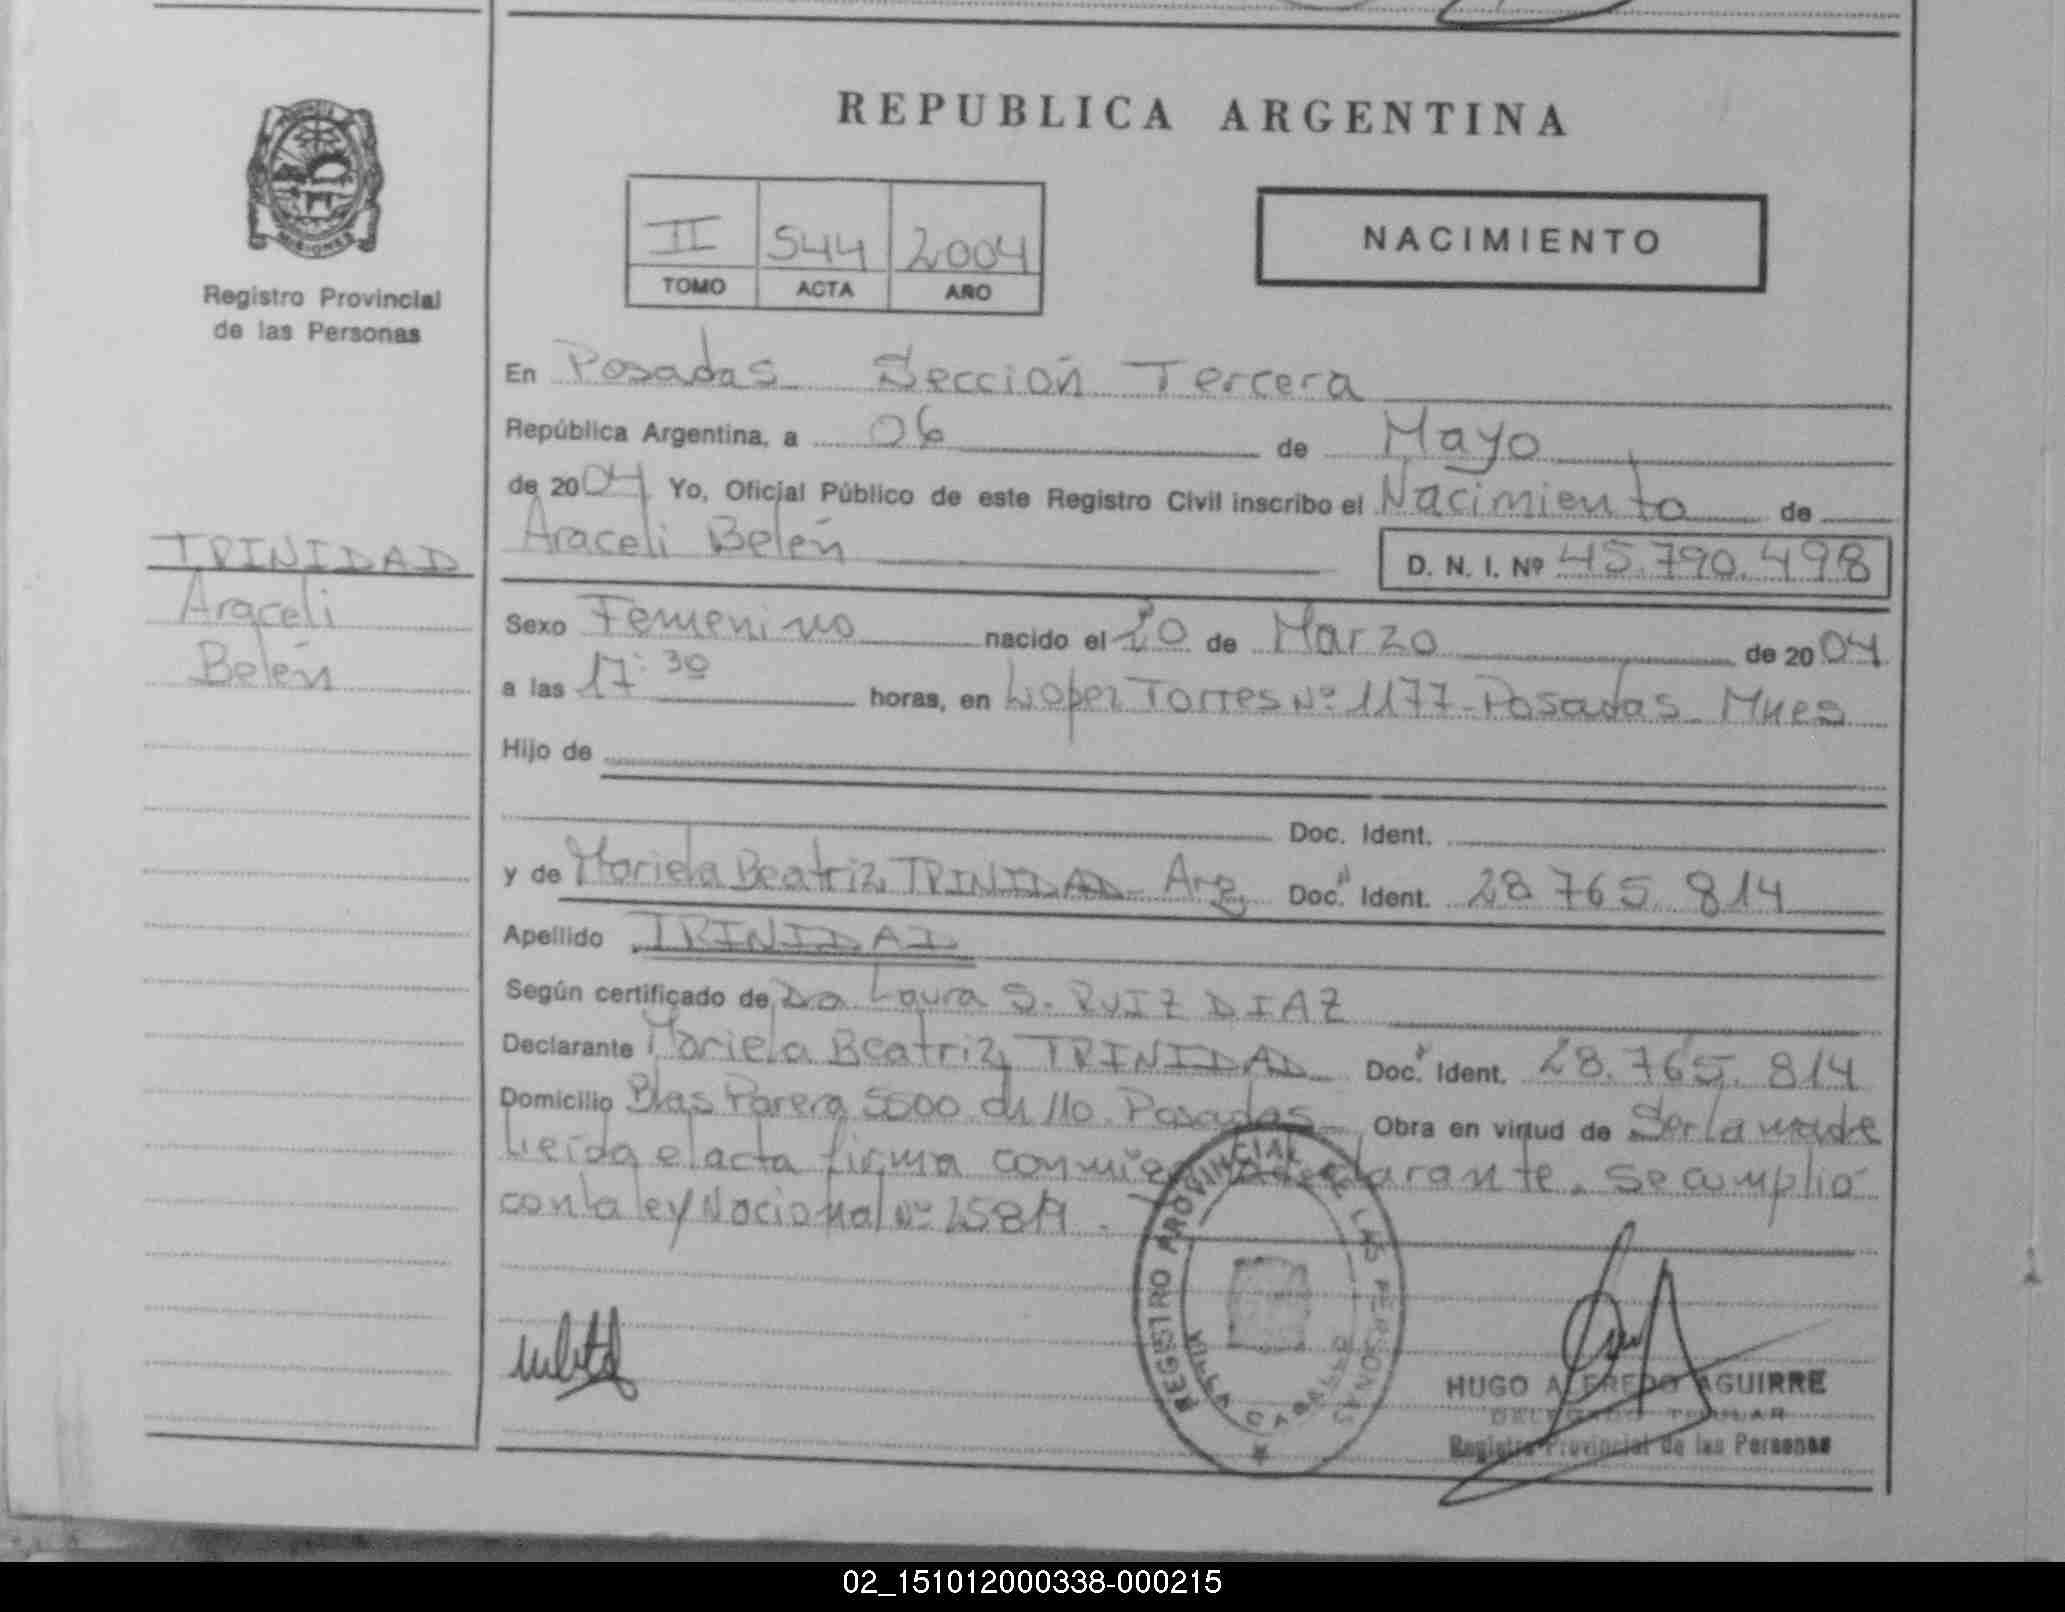 REPUBLICA ARGENTINA
MISIONES
Registro Provincial
de las Personas
II 544 2004
TOMO ACTA AÑO
NACIMIENTO
En Posadas Sección Tercera
República Argentina, a 06 de Mayo
de 2004 Yo, Oficial Público de este Registro Civil inscribo el Nacimiento de
Araceli Belén D. N. I. Nº 45.790.498
TRINIDAD
Araceli
Belén
Sexo Femenino nacido el 20 de Marzo de 2004
a las 17:30 horas, en Lopez Torres Nº 1177-Posadas Mnes
Hijo de
Doc. Ident.
y de Mariela Beatriz TRINIDAD - Arg. Doc. Ident. 28.765.814
Apellido TRINIDAD
Según certificado de Dra Laura S. RUIZ DIAZ
Declarante Mariela Beatriz TRINIDAD Doc. Ident. 28.765.814
Domicilio Blas Parera 5500 ch 110 Posadas Obra en virtud de Ser la madre
Leída el acta firma conmigo declarante. Se cumplió
con la ley Nacional Nº
REGISTRO PROVINCIAL DE LAS PERSONAS
VILLA CABELLO
HUGO ALFREDO AGUIRRE
DELEGADO TITULAR
Registro Provincial de las Personas
02_151012000338-000215